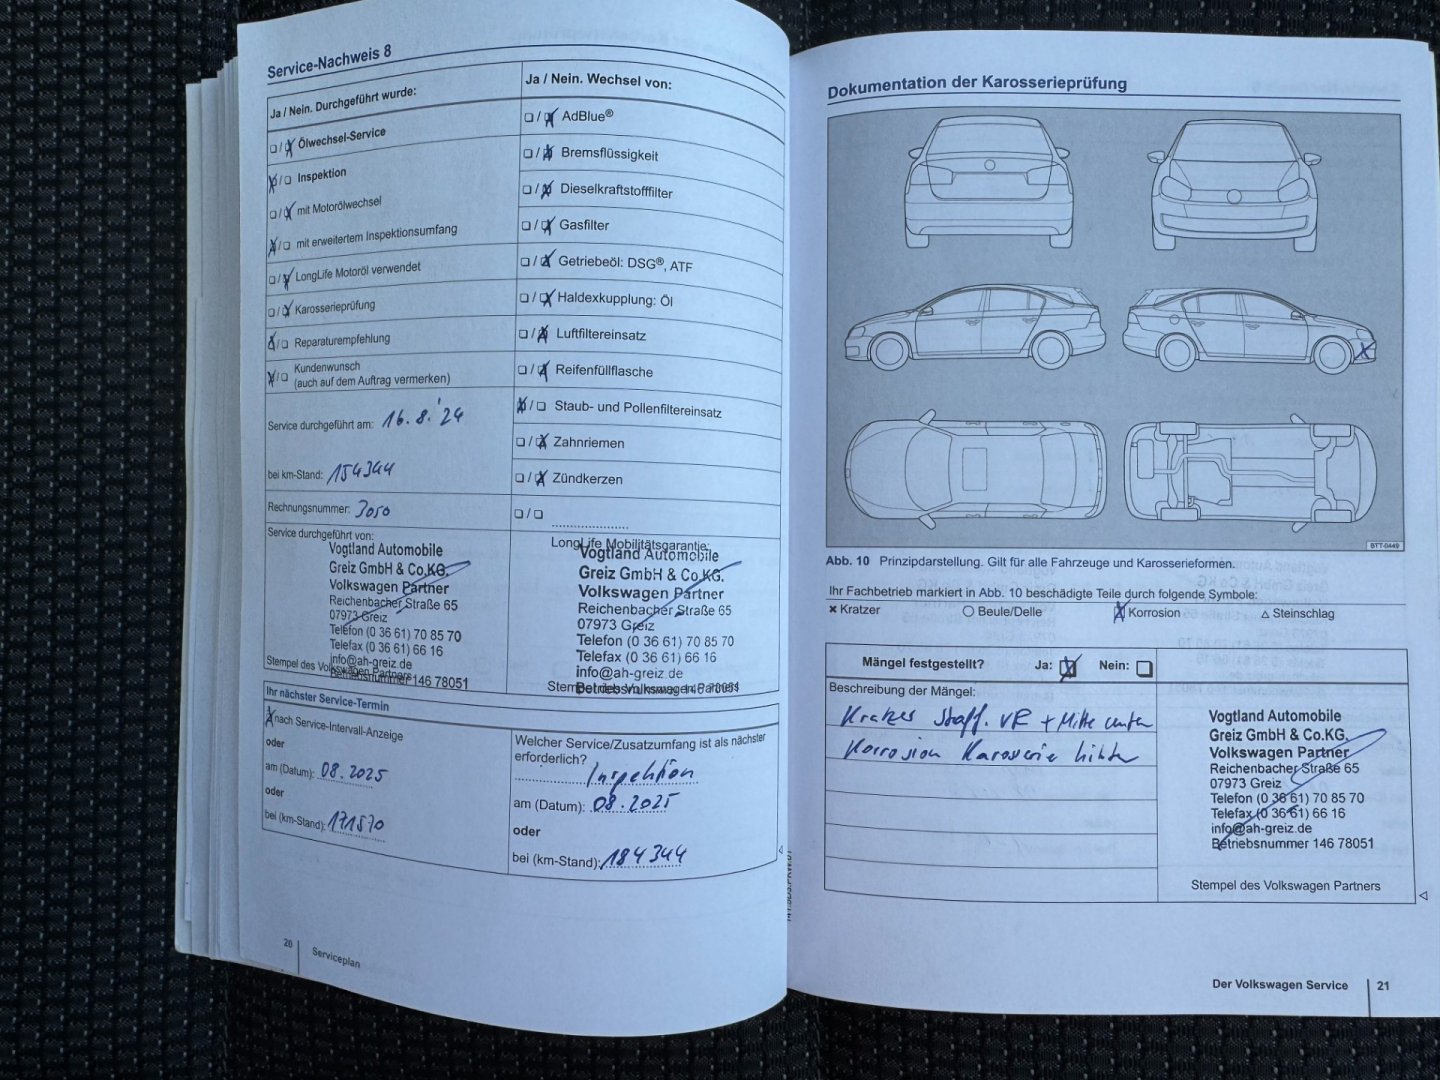 Service-Nachweis 8
Ja / Nein. Durchgeführt wurde:
❏ / ❏ Ölwechsel-Service
❏ / ❏ Inspektion
❏ / ❏ mit Motorölwechsel
❏ / ❏ mit erweitertem Inspektionsumfang
❏ / ❏ LongLife Motoröl verwendet
❏ / ❏ Karosserieprüfung
❏ / ❏ Reparaturempfehlung
❏ / ❏ Kundenwunsch
(auch auf dem Auftrag vermerken)
Service durchgeführt am: 16.8.'24
bei km-Stand: 154344
Rechnungsnummer: 3050
Service durchgeführt von:
Vogtland Automobile
Greiz GmbH & Co.KG.
Volkswagen Partner
Reichenbacher Straße 65
07973 Greiz
Telefon (0 36 61) 70 85 70
Telefax (0 36 61) 66 16
info@ah-greiz.de
Betriebsnummer 146 78051
Stempel des Volkswagen Partners
Ja / Nein. Wechsel von:
❏ / ❏ AdBlue®
❏ / ❏ Bremsflüssigkeit
❏ / ❏ Dieselkraftstofffilter
❏ / ❏ Gasfilter
❏ / ❏ Getriebeöl: DSG®, ATF
❏ / ❏ Haldexkupplung: Öl
❏ / ❏ Luftfiltereinsatz
❏ / ❏ Reifenfüllflasche
❏ / ❏ Staub- und Pollenfiltereinsatz
❏ / ❏ Zahnriemen
❏ / ❏ Zündkerzen
❏ / ❏ ....................
LongLife Mobilitätsgarantie:
Vogtland Automobile
Greiz GmbH & Co.KG.
Volkswagen Partner
Reichenbacher Straße 65
07973 Greiz
Telefon (0 36 61) 70 85 70
Telefax (0 36 61) 66 16
info@ah-greiz.de
Betriebsnummer 146 78051
Stempel des Volkswagen Partners
Ihr nächster Service-Termin
❏ nach Service-Intervall-Anzeige
oder
am (Datum): 08.2025
oder
bei (km-Stand): 171570
Welcher Service/Zusatzumfang ist als nächster
erforderlich?
Inspektion
am (Datum): 08.2025
oder
bei (km-Stand): 184344
20
Serviceplan
Dokumentation der Karosserieprüfung
BTT-0449
Abb. 10 Prinzipdarstellung. Gilt für alle Fahrzeuge und Karosserieformen.
Ihr Fachbetrieb markiert in Abb. 10 beschädigte Teile durch folgende Symbole:
✖ Kratzer
○ Beule/Delle
Korrosion
△ Steinschlag
Mängel festgestellt? Ja: ❏ Nein: ❏
Beschreibung der Mängel:
Kratzer Stoßf. VR + Mitte unten
Korrosion Karosserie hinten
Vogtland Automobile
Greiz GmbH & Co.KG.
Volkswagen Partner
Reichenbacher Straße 65
07973 Greiz
Telefon (0 36 61) 70 85 70
Telefax (0 36 61) 66 16
info@ah-greiz.de
Betriebsnummer 146 78051
Stempel des Volkswagen Partners
Der Volkswagen Service
21